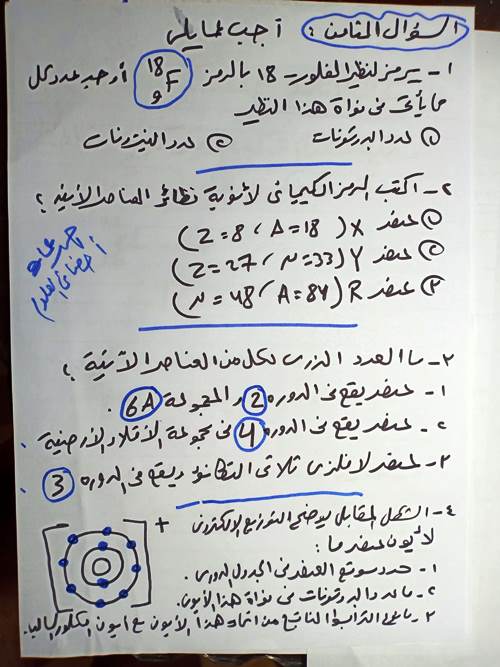 السؤال الثامن : أجب عمايلي
١- يرمز لنظير الفلور - ١٨ بالرمز 18 F 9 أوجد عدد كل
مما يأتي في نواة هذا النظير
① عدد البروتونات ② عدد النيترونات
٢- اكتب الرمز الكيميائي لأنوية نظائر العناصر الآتية ؟
① عنصر X (Z=8 ، A=18)
② عنصر Y (Z=27 ، N=33)
③ عنصر R (N=48 ، A=84)
٣- ما العدد الذري لكل من العناصر الآتية ؟
١- عنصر يقع في الدورة 2 و المجموعة 6A .
٢- عنصر يقع في الدورة 4 في مجموعة الأقلاء الأرضية .
٣- عنصر لافلزي ثلاثي التكافؤ ويقع في الدورة 3 .
٤- الشكل المقابل يوضح التوزيع الإلكتروني
لأيون عنصر ما :
+
١- حدد موقع العنصر في الجدول الدوري .
٢- ما عدد البروتونات في نواة هذا الأيون .
٣- ما نوع الترابط الناتج من اتحاد هذا الأيون مع أيون الكلور السالب .